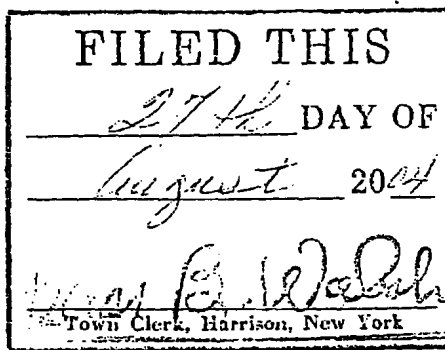 FILED THIS
27th DAY OF
August 2004
B. Walsh
Town Clerk, Harrison, New York